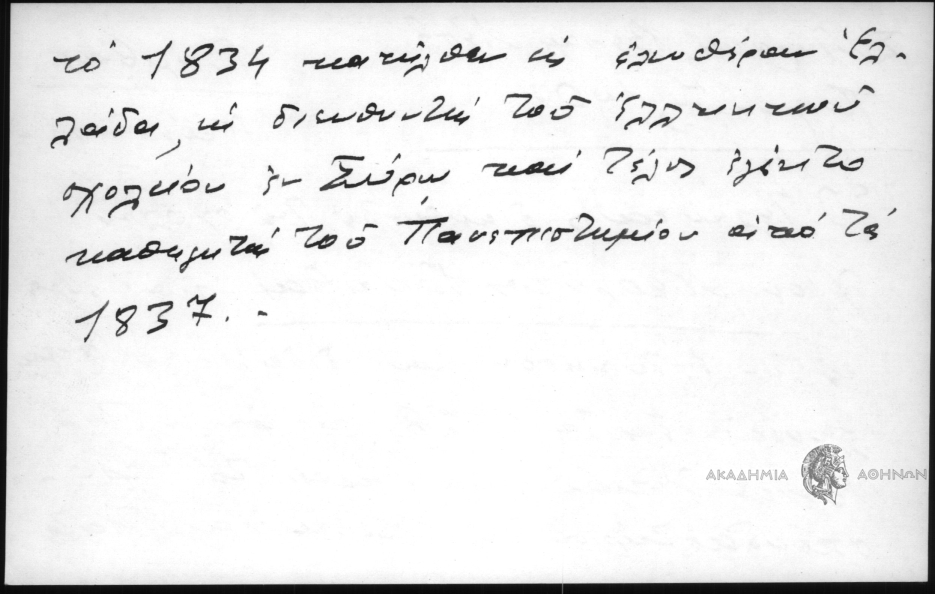 τὸ 1834 κατῆλθεν εἰς ἐλευθέραν Ἑλ-
λάδα, ὡς διευθυντὴς τοῦ Ἑλληνικοῦ
σχολείου ἐν Σύρῳ καὶ τέλος ἐγένετο
καθηγητὴς τοῦ Πανεπιστημίου ἀπὸ τὸ
1837.-
ΑΚΑΔΗΜΙΑ ΑΘΗΝΩΝ